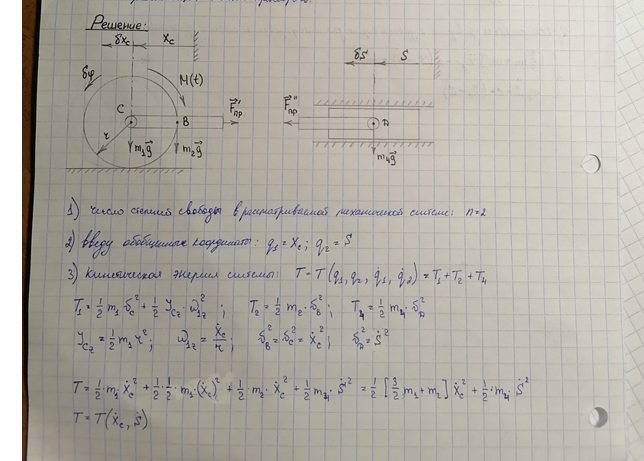 Решение:
δx_c x_c
δφ M(t)
C B F⃗'_пр
r m₁g⃗ m₂g⃗
δS S
F⃗''_пр D
m₄g⃗
1) Число степеней свободы в рассматриваемой механической системе: n=2
2) Введу обобщенные координаты: q₁ = x_c; q₂ = S
3) Кинетическая энергия системы: T = T(q₁, q₂, q̇₁, q̇₂) = T₁ + T₂ + T₄
T₁ = ½ m₁ v_c² + ½ J_cz · ω₁z² ; T₂ = ½ m₂ · v_B² ; T₄ = ½ m₄ · v_D²
J_cz = ½ m₁ r² ; ω₁z = ẋ_c/r ; v_B² = v_c² = ẋ_c² ; v_D² = Ṡ²
T = ½ · m₁ · ẋ_c² + ½ · ½ · m₁ · (ẋ_c)² + ½ · m₂ · ẋ_c² + ½ m₄ · Ṡ² = ½ [3/2 m₁ + m₂] ẋ_c² + ½ · m₄ · Ṡ²
T = T(ẋ_c, Ṡ)